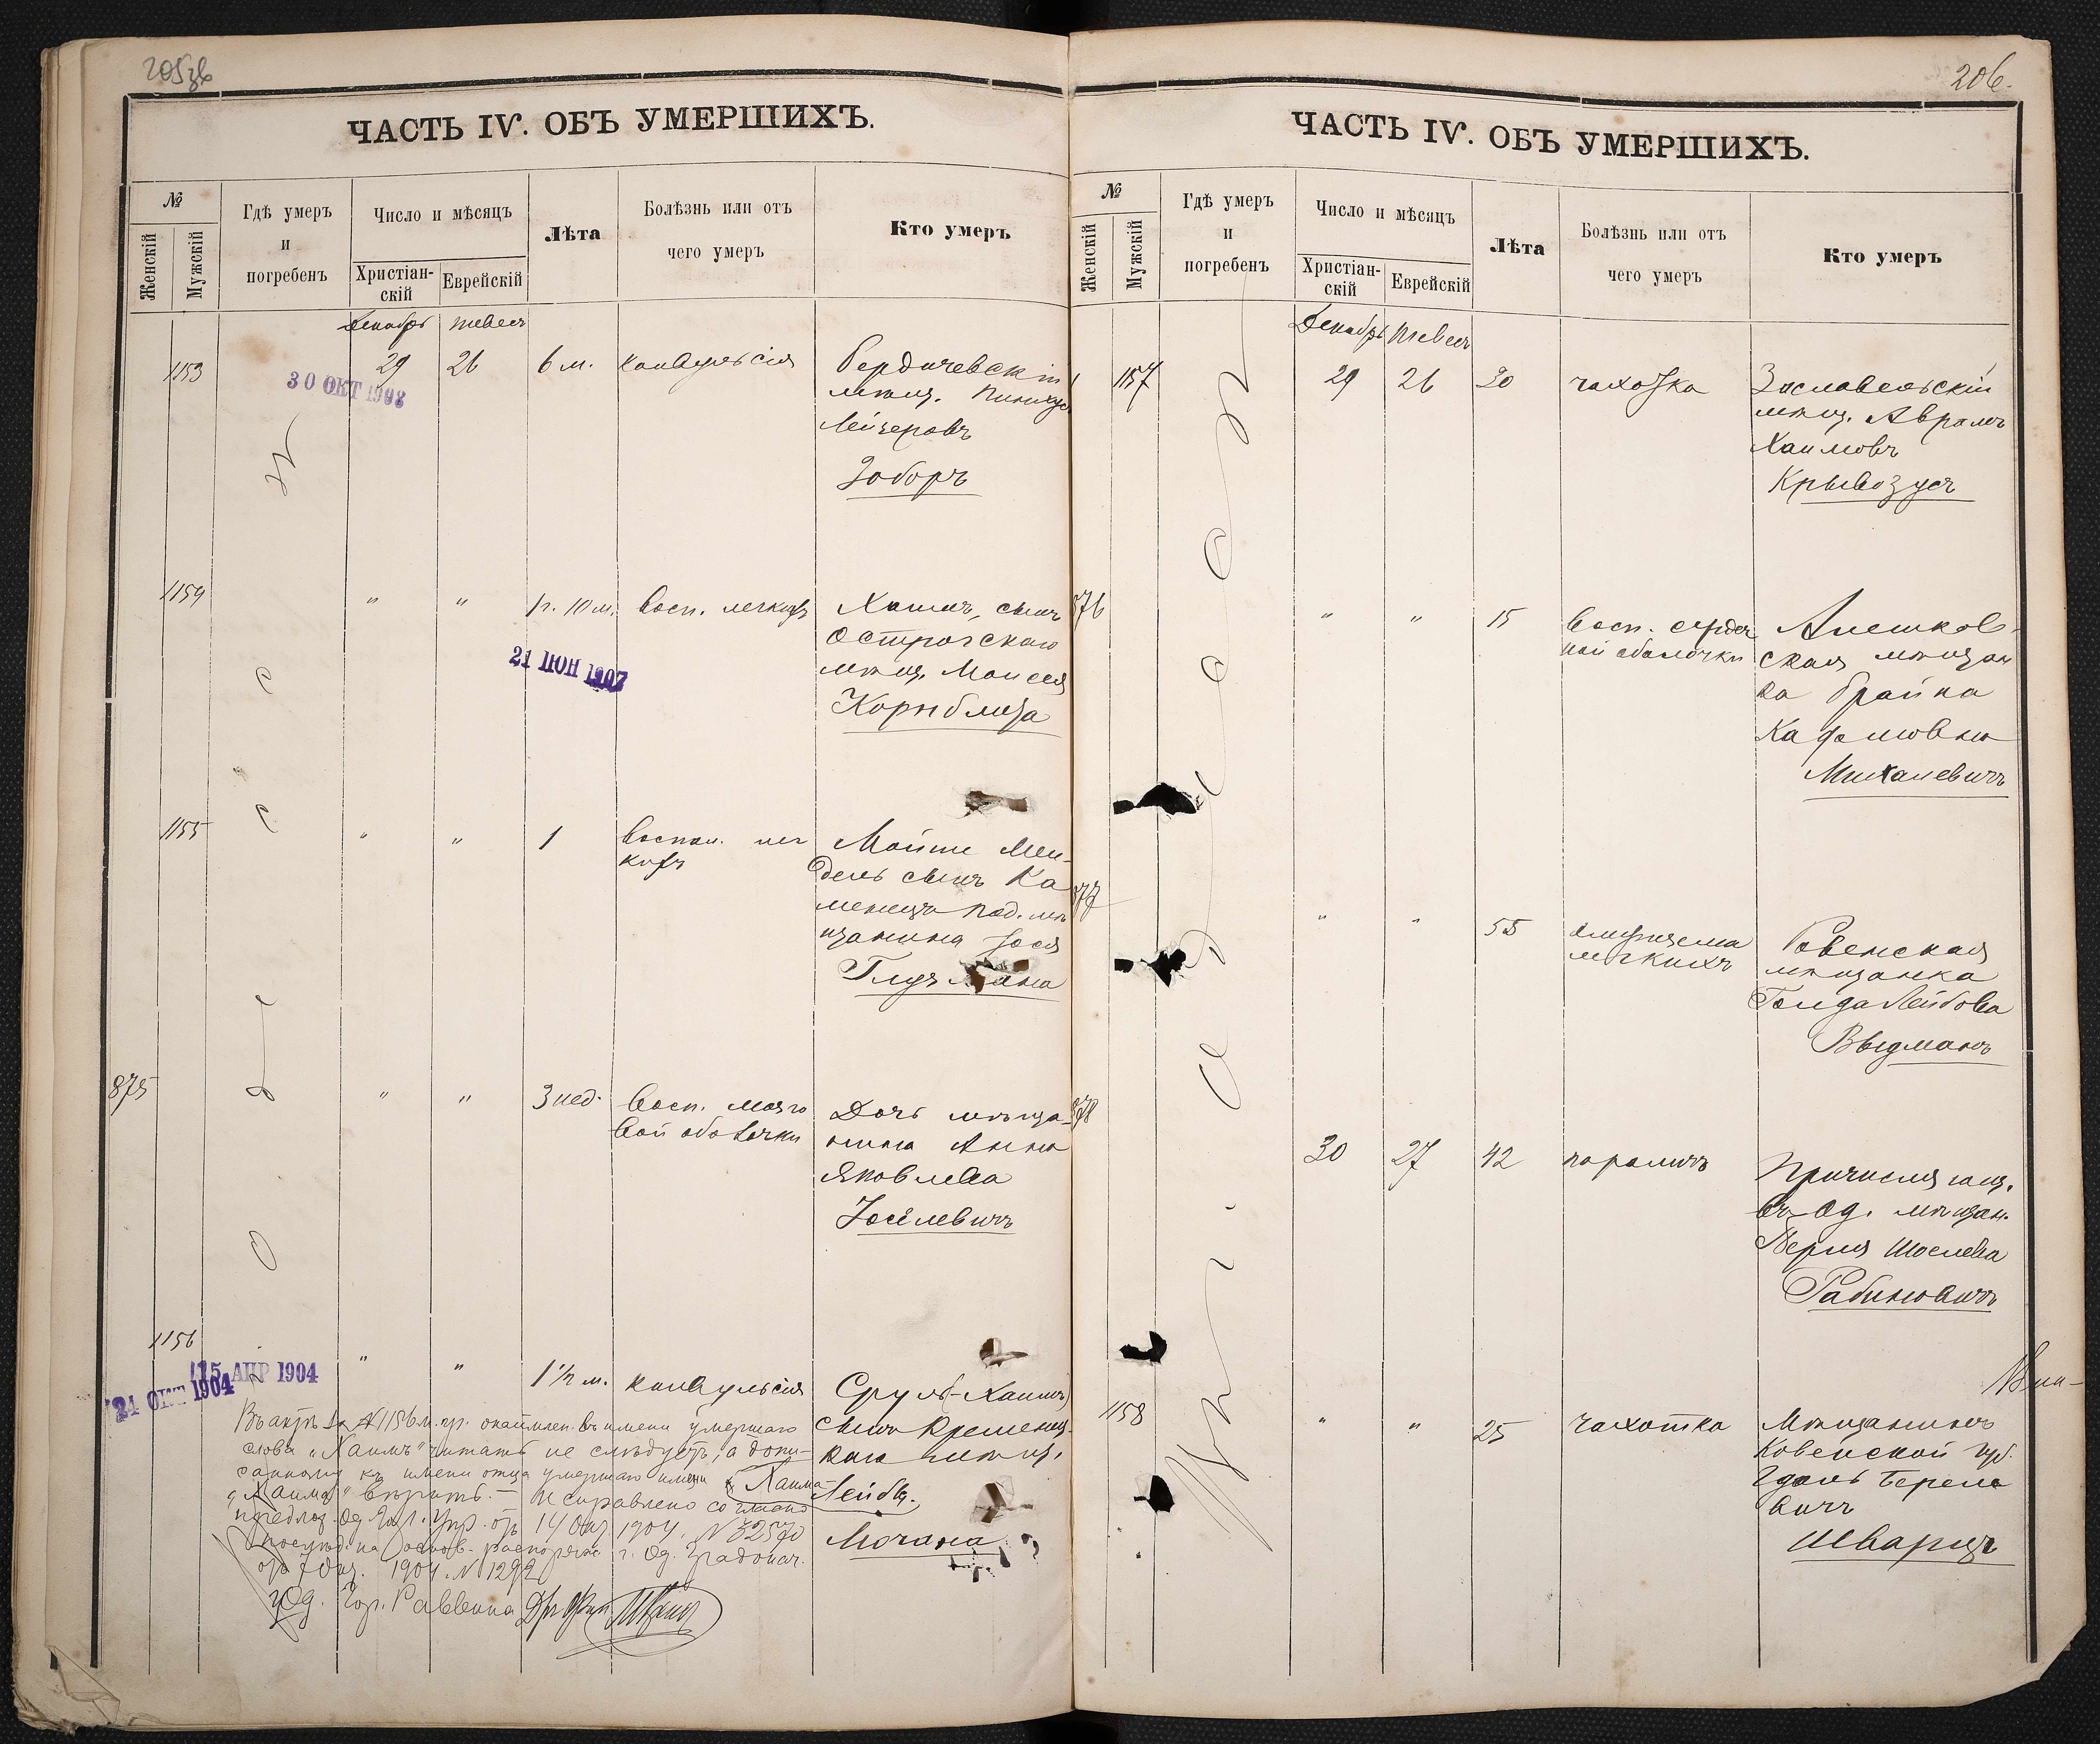 205об
ЧАСТЬ IV. ОБЪ УМЕРШИХЪ.
№
Женскій
Мужскій
Гдѣ умеръ
и
погребенъ
Число и мѣсяцъ
Христіан-
скій
Еврейскій
Лѣта
Болѣзнь или отъ
чего умеръ
Кто умеръ
Декабрь
тевесъ
1153
29
26
6 м.
конвульсія
Бердичевскій
мѣщ. Пинхус
Лейзеровъ
Зоборъ
30 ОКТ 1908
1154
"
"
1 г. 10 м.
Восп. легкихъ
Хаимъ, сынъ
Острогскаго
мѣщ. Моисея
21 ІЮН 1907
1155
"
"
1
Воспал. лег
кихъ
Мойше Мен-
дель сынъ Ка
менецъ Под. мѣ
щанина Іося
875
"
"
3 нед.
Восп. мозго
вой оболочки
Дочь мѣща-
нина Анна
Яковлева
Іосілевичъ
1156
"
"
1 1/2 м.
конвульсія
Сруль-Хаимъ
сынъ Кременец-
каго мѣщ.
Хаима
Лейбы
Мочана
15 АПР 1904
21 ОКТ 1904
Въ актѣ за №1156 м. гр. окаймлен. въ имени умершаго
слова „Хаимъ" читать не слѣдуетъ, а допи-
санному къ имени отца умершаго имени
„Хаима" вѣрить. — Исправлено согласно
предлож. Од. Гор. Упр. отъ 14 Окт. 1904. № 32570
послѣд. на основ. распоряж. г. Од. Градонач.
отъ 7 Окт. 1904. № 12920
Од. Гор. Раввина
Одесса
206.
ЧАСТЬ IV. ОБЪ УМЕРШИХЪ.
№
Женскій
Мужскій
Гдѣ умеръ
и
погребенъ
Число и мѣсяцъ
Христіан-
скій
Еврейскій
Лѣта
Болѣзнь или отъ
чего умеръ
Кто умеръ
Декабрь
Тевесъ
1157
29
26
30
чахотка
Заславльскій
мѣщ. Аврамъ
Хаимовъ
Крывозусъ
876
"
"
15
Восп. сердеч
ной оболочки
Алешков-
ская мѣщан
ка Брайна
Михалевичъ
877
"
"
55
эмфизема
легкихъ
Ровенская
мѣщанка
Голда Лейбова
Выдманъ
878
30
27
42
параличъ
Причисляющ.
въ Од. мѣщан.
Перля
Рабиновичъ
1158
"
"
25
чахотка
Мѣщанинъ
Ковенской губ.
Гдаль Береле
вичъ
Шварцъ